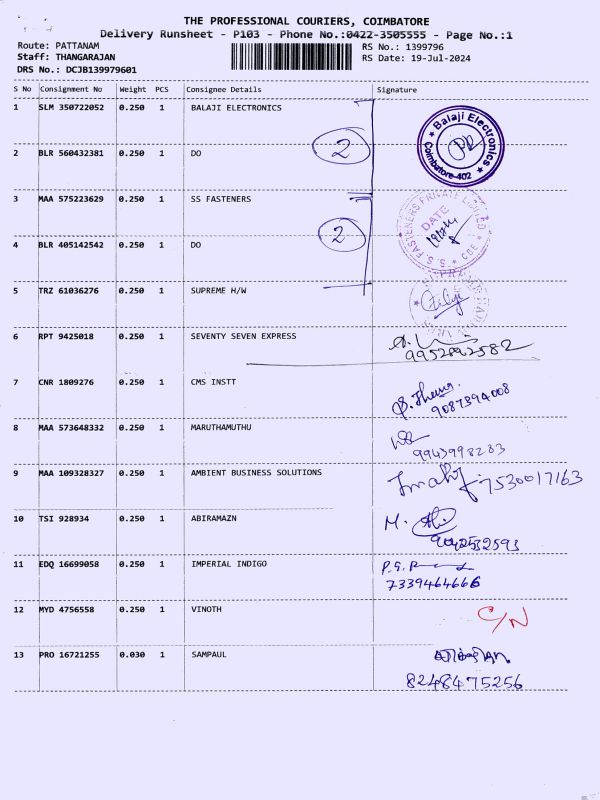 THE PROFESSIONAL COURIERS, COIMBATORE
Delivery Runsheet - P103 - Phone No.:0422-3505555 - Page No.:1
Route: PATTANAM
RS No.: 1399796
Staff: THANGARAJAN
RS Date: 19-Jul-2024
DRS No.: DCJB139979601
S No Consignment No Weight PCS Consignee Details Signature
1 SLM 350722052 0.250 1 BALAJI ELECTRONICS
Balaji Electronics
Coimbatore-402
2 BLR 560432381 0.250 1 DO
2
3 MAA 575223629 0.250 1 SS FASTENERS
S.S. FASTENERS PRIVATE LIMITED
DATE
CBE
4 BLR 405142542 0.250 1 DO
2
5 TRZ 61036276 0.250 1 SUPREME H/W
6 RPT 9425018 0.250 1 SEVENTY SEVEN EXPRESS
9952892582
7 CNR 1809276 0.250 1 CMS INSTT
9087394008
8 MAA 573648332 0.250 1 MARUTHAMUTHU
9943998283
9 MAA 109328327 0.250 1 AMBIENT BUSINESS SOLUTIONS
7530017163
10 TSI 928934 0.250 1 ABIRAMAZN
9042532593
11 EDQ 16699058 0.250 1 IMPERIAL INDIGO
7339464666
12 MYD 4756558 0.250 1 VINOTH
C/N
13 PRO 16721255 0.030 1 SAMPAUL
8248475256